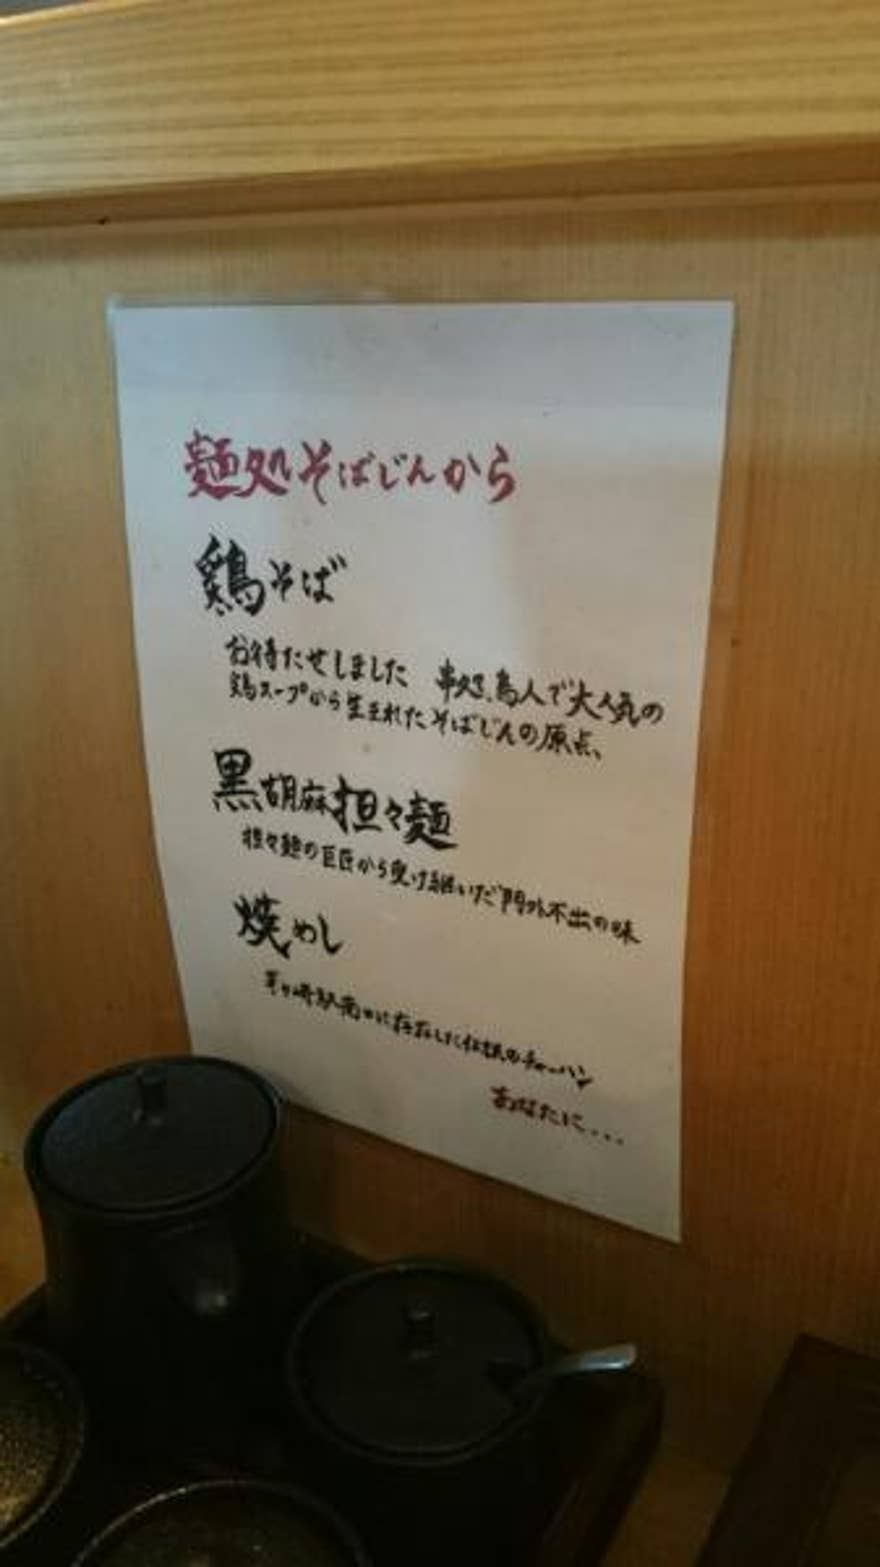 麺処そばじんから
鶏そば
お待たせしました 串処、鳥人で大人気の
鶏スープから生まれたそばじんの原点、
黒胡麻担々麺
担々麺の巨匠から受け継いだ門外不出の味
焼めし
茅ヶ崎駅南口に存在した伝説のチャーハン
あなたに...